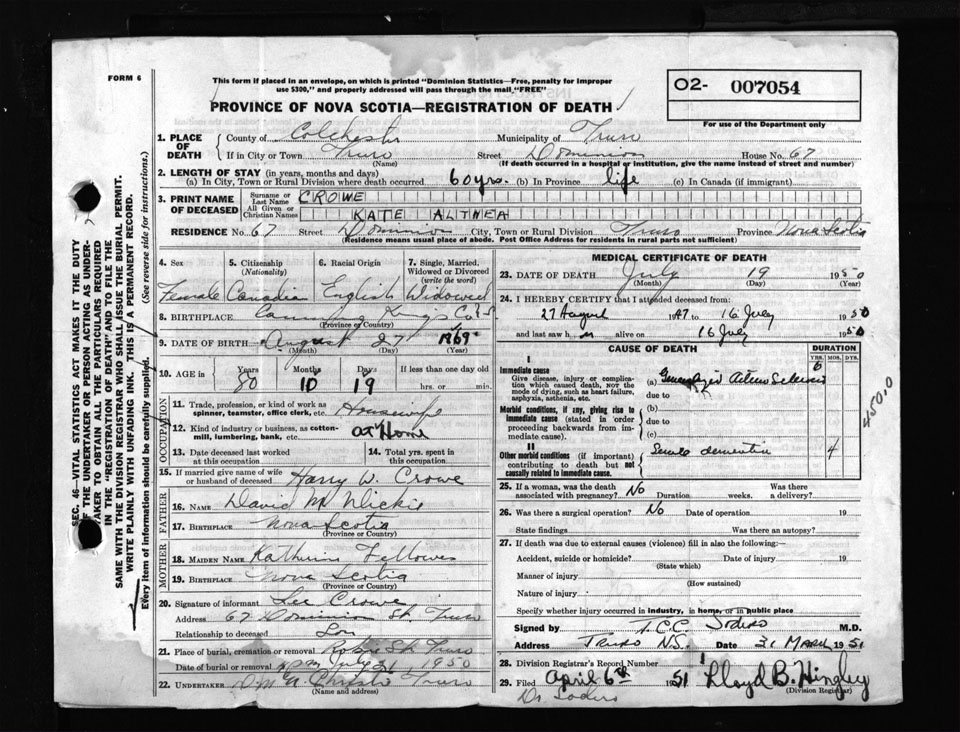 FORM 6
This form if placed in an envelope, on which is printed "Dominion Statistics—Free, penalty for improper
use $300," and properly addressed will pass through the mail "FREE"
PROVINCE OF NOVA SCOTIA—REGISTRATION OF DEATH
02- 007054
For use of the Department only
SEC. 46—VITAL STATISTICS ACT MAKES IT THE DUTY
OF THE UNDERTAKER OR PERSON ACTING AS UNDER-
TAKER TO OBTAIN ALL THE PARTICULARS REQUIRED
IN THE "REGISTRATION OF DEATH" AND TO FILE THE
SAME WITH THE DIVISION REGISTRAR WHO SHALL ISSUE THE BURIAL PERMIT.
WRITE PLAINLY WITH UNFADING INK. THIS IS A PERMANENT RECORD.
Every item of information should be carefully supplied. (See reverse side for instructions.)
1. PLACE OF DEATH
County of Colchester Municipality of Truro
If in City or Town Truro Street Dominion House No. 67
(Name) (If death occurred in a hospital or institution, give the name instead of street and number)
2. LENGTH OF STAY (in years, months and days)
(a) In City, Town or Rural Division where death occurred 60 yrs. (b) In Province life (c) In Canada (if immigrant)
3. PRINT NAME OF DECEASED
Surname or Last Name CROWE
All Given or Christian Names KATE ALTHEA
RESIDENCE No. 67 Street Dominion City, Town or Rural Division Truro Province Nova Scotia
(Residence means usual place of abode. Post Office Address for residents in rural parts not sufficient)
4. Sex 5. Citizenship (Nationality) 6. Racial Origin 7. Single, Married, Widowed or Divorced (write the word)
Female Canadian English Widowed
8. BIRTHPLACE Canning King's Co N.S.
(Province or Country)
9. DATE OF BIRTH August 27 1869
(Month) (Day) (Year)
10. AGE in Years Months Days If less than one day old
80 10 19 hrs. or min.
OCCUPATION
11. Trade, profession, or kind of work as
spinner, teamster, office clerk, etc. Housewife
12. Kind of industry or business, as cotton-
mill, lumbering, bank, etc. at Home
13. Date deceased last worked at this occupation
14. Total yrs. spent in this occupation
15. If married give name of wife
or husband of deceased Harry W. Crowe
FATHER
16. Name David M. Dickie
17. Birthplace Nova Scotia
(Province or Country)
MOTHER
18. Maiden Name Katherine Fellowes
19. Birthplace Nova Scotia
(Province or Country)
20. Signature of informant Lee Crowe
Address 67 Dominion St. Truro
Relationship to deceased Son
21. Place of burial, cremation or removal Robie St. Truro
Date of burial or removal July 21, 1950
22. UNDERTAKER Christie Truro
(Name and address)
MEDICAL CERTIFICATE OF DEATH
23. DATE OF DEATH July 19 1950
(Month) (Day) (Year)
24. I HEREBY CERTIFY that I attended deceased from:
27 August 1947 to 16 July 1950
and last saw h alive on 16 July 1950
CAUSE OF DEATH DURATION
YRS. MOS. DYS.
I
Immediate cause
Give disease, injury or complica-
tion which caused death, NOT the
mode of dying, such as heart failure,
asphyxia, asthenia, etc.
(a) Generalized Arterio Sclerosis 6
due to
Morbid conditions, if any, giving rise to
immediate cause (stated in order
proceeding backwards from im-
mediate cause).
(b)
due to
(c)
II
Other morbid conditions (if important)
contributing to death but not
causally related to immediate cause.
Senile dementia 4
450.0
25. If a woman, was the death
associated with pregnancy? No Duration weeks. Was there a delivery?
26. Was there a surgical operation? No Date of operation 19
State findings Was there an autopsy?
27. If death was due to external causes (violence) fill in also the following:—
Accident, suicide or homicide? Date of injury 19
(State which)
Manner of injury
(How sustained)
Nature of injury
Specify whether injury occurred in industry, in home, or in public place
Signed by T.C.C. Sodero M.D.
Address Truro N.S. Date 31 March 1951
28. Division Registrar's Record Number
29. Filed April 6th 1951 Lloyd B. Hingley
(Division Registrar)
Dr Sodero